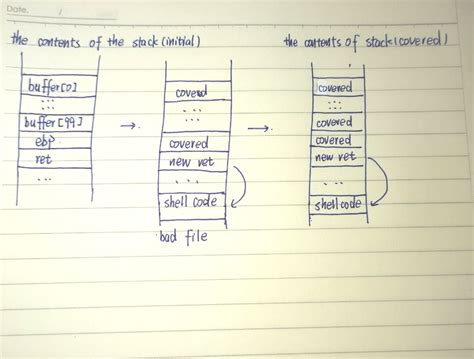 Date. /
the contents of the stack (initial)
the contents of stack (covered)
buffer[0]
...
...
buffer[99]
ebp
ret
...
covered
...
...
covered
new ret
...
shell code
bad file
covered
...
covered
covered
new ret
...
shell code